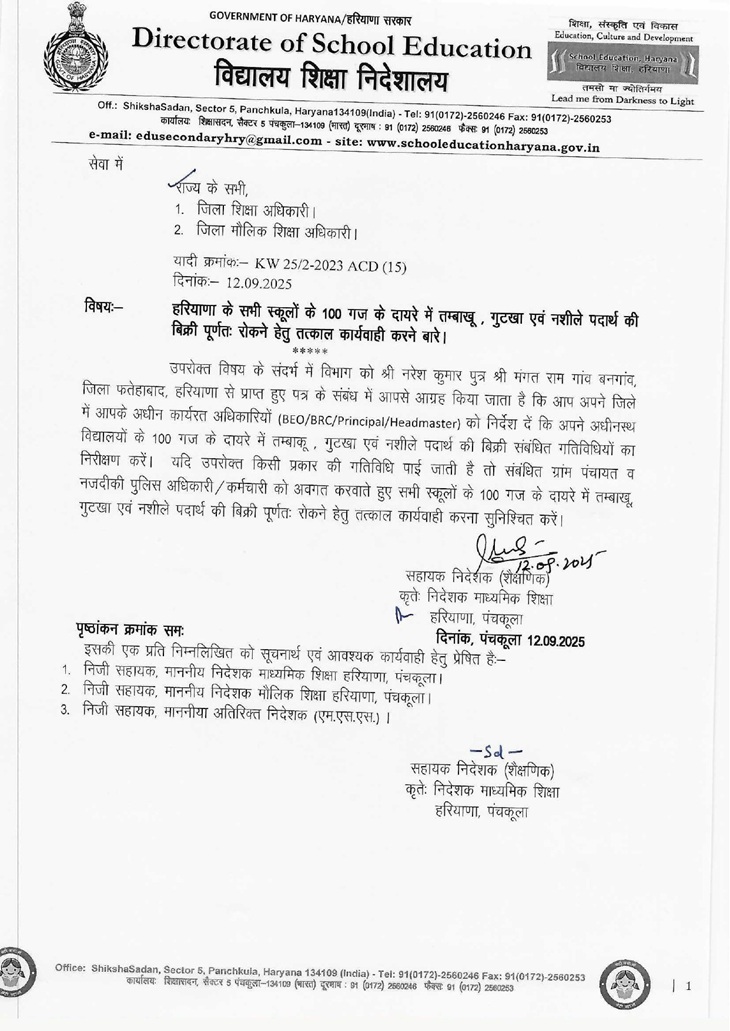 GOVERNMENT OF HARYANA/हरियाणा सरकार
Directorate of School Education
विद्यालय शिक्षा निदेशालय
शिक्षा, संस्कृति एवं विकास
Education, Culture and Development
School Education, Haryana
विद्यालय शिक्षा, हरियाणा
तमसो मा ज्योतिर्गमय
Lead me from Darkness to Light
Off.: ShikshaSadan, Sector 5, Panchkula, Haryana134109(India) - Tel: 91(0172)-2560246 Fax: 91(0172)-2560253
कार्यालयः शिक्षासदन, सैक्टर 5 पंचकूला–134109 (भारत) दूरभाष : 91 (0172) 2560246 फैक्सः 91 (0172) 2560253
e-mail: edusecondaryhry@gmail.com - site: www.schooleducationharyana.gov.in
सेवा में
राज्य के सभी,
1. जिला शिक्षा अधिकारी।
2. जिला मौलिक शिक्षा अधिकारी।
यादी क्रमांकः– KW 25/2-2023 ACD (15)
दिनांकः– 12.09.2025
विषयः– हरियाणा के सभी स्कूलों के 100 गज के दायरे में तम्बाखू , गुटखा एवं नशीले पदार्थ की
बिक्री पूर्णतः रोकने हेतु तत्काल कार्यवाही करने बारे।
*****
उपरोक्त विषय के संदर्भ में विभाग को श्री नरेश कुमार पुत्र श्री मंगत राम गांव बनगांव,
जिला फतेहाबाद, हरियाणा से प्राप्त हुए पत्र के संबंध में आपसे आग्रह किया जाता है कि आप अपने जिले
में आपके अधीन कार्यरत अधिकारियों (BEO/BRC/Principal/Headmaster) को निर्देश दें कि अपने अधीनस्थ
विद्यालयों के 100 गज के दायरे में तम्बाकू , गुटखा एवं नशीले पदार्थ की बिक्री संबंधित गतिविधियों का
निरीक्षण करें। यदि उपरोक्त किसी प्रकार की गतिविधि पाई जाती है तो संबंधित ग्रांम पंचायत व
नजदीकी पुलिस अधिकारी/कर्मचारी को अवगत करवाते हुए सभी स्कूलों के 100 गज के दायरे में तम्बाखू,
गुटखा एवं नशीले पदार्थ की बिक्री पूर्णतः रोकने हेतु तत्काल कार्यवाही करना सुनिश्चित करें।
12.09.2025
सहायक निदेशक (शैक्षणिक)
कृतेः निदेशक माध्यमिक शिक्षा
हरियाणा, पंचकूला
पृष्ठांकन क्रमांक समः
दिनांक, पंचकूला 12.09.2025
इसकी एक प्रति निम्नलिखित को सूचनार्थ एवं आवश्यक कार्यवाही हेतु प्रेषित हैः–
1. निजी सहायक, माननीय निदेशक माध्यमिक शिक्षा हरियाणा, पंचकूला।
2. निजी सहायक, माननीय निदेशक मौलिक शिक्षा हरियाणा, पंचकूला।
3. निजी सहायक, माननीया अतिरिक्त निदेशक (एम.एस.एस.) ।
–Sd–
सहायक निदेशक (शैक्षणिक)
कृतेः निदेशक माध्यमिक शिक्षा
हरियाणा, पंचकूला
Office: ShikshaSadan, Sector 5, Panchkula, Haryana 134109 (India) - Tel: 91(0172)-2560246 Fax: 91(0172)-2560253
कार्यालयः शिक्षासदन, सैक्टर 5 पंचकूला–134109 (भारत) दूरभाष : 91 (0172) 2560246 फैक्सः 91 (0172) 2560253
| 1